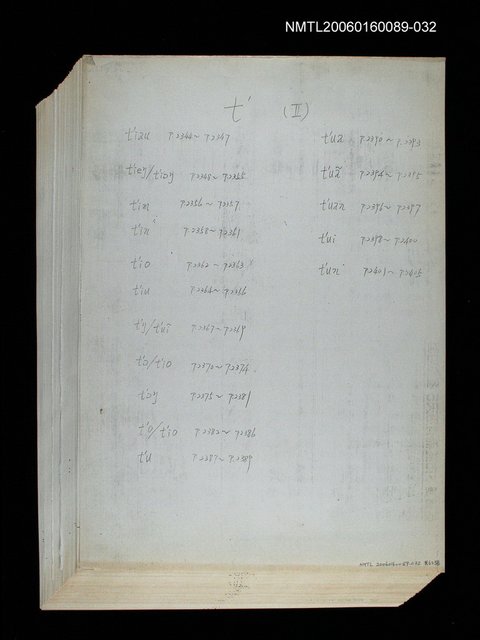 NMTL20060160089-032
t' (II)
t'iau P.2344~P.2347
t'ieŋ/t'iaŋ P.2348~P.2355
t'im P.2356~P.2357
t'in P.2358~P.2361
t'io P.2362~P.2363
t'iu P.2364~P.2366
t'ŋ/t'uĩ P.2367~P.2369
t'o/t'io P.2370~P.2374
t'oŋ P.2375~P.2381
P.2382~P.2386
t'u P.2387~P.2389
t'ua P.2390~P.2393
t'uã P.2394~P.2395
t'uan P.2396~P.2397
t'ui P.2398~P.2400
t'un P.2401~P.2405